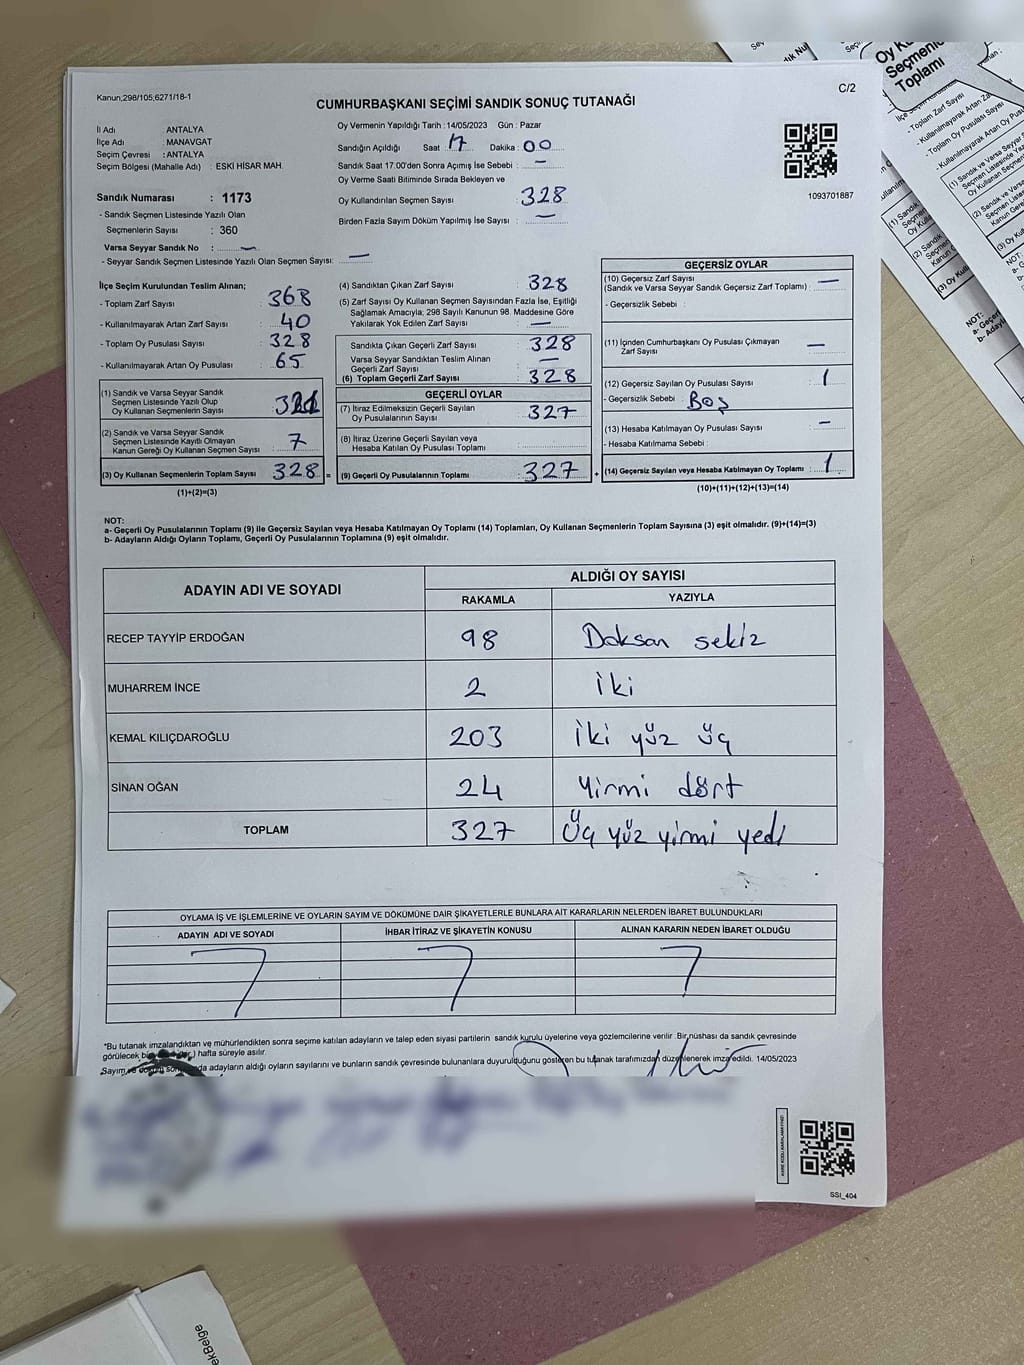 Kanun;298/105,6271/18-1
C/2
CUMHURBAŞKANI SEÇİMİ SANDIK SONUÇ TUTANAĞI
İl Adı : ANTALYA
İlçe Adı : MANAVGAT
Seçim Çevresi : ANTALYA
Seçim Bölgesi (Mahalle Adı) : ESKİ HİSAR MAH.
Sandık Numarası : 1173
- Sandık Seçmen Listesinde Yazılı Olan
Seçmenlerin Sayısı : 360
Varsa Seyyar Sandık No : —
- Seyyar Sandık Seçmen Listesinde Yazılı Olan Seçmen Sayısı: —
Oy Vermenin Yapıldığı Tarih : 14/05/2023 Gün : Pazar
Sandığın Açıldığı Saat : 17 Dakika : 00
Sandık Saat 17.00'den Sonra Açımış İse Sebebi : —
Oy Verme Saati Bitiminde Sırada Bekleyen ve
Oy Kullandırılan Seçmen Sayısı : 328
Birden Fazla Sayım Döküm Yapılmış İse Sayısı : —
1093701887
İlçe Seçim Kurulundan Teslim Alınan;
- Toplam Zarf Sayısı : 368
- Kullanılmayarak Artan Zarf Sayısı : 40
- Toplam Oy Pusulası Sayısı : 328
- Kullanılmayarak Artan Oy Pusulası : 65
(1) Sandık ve Varsa Seyyar Sandık
Seçmen Listesinde Yazılı Olup
Oy Kullanan Seçmenlerin Sayısı : 321
(2) Sandık ve Varsa Seyyar Sandık
Seçmen Listesinde Kayıtlı Olmayan
Kanun Gereği Oy Kullanan Seçmen Sayısı : 7
(3) Oy Kullanan Seçmenlerin Toplam Sayısı : 328 =
(1)+(2)=(3)
(4) Sandıktan Çıkan Zarf Sayısı : 328
(5) Zarf Sayısı Oy Kullanan Seçmen Sayısından Fazla İse, Eşitliği
Sağlamak Amacıyla; 298 Sayılı Kanunun 98. Maddesine Göre
Yakılarak Yok Edilen Zarf Sayısı : —
Sandıkta Çıkan Geçerli Zarf Sayısı : 328
Varsa Seyyar Sandıktan Teslim Alınan
Geçerli Zarf Sayısı : —
(6) Toplam Geçerli Zarf Sayısı : 328
GEÇERLİ OYLAR
(7) İtiraz Edilmeksizin Geçerli Sayılan
Oy Pusulalarının Sayısı : 327
(8) İtiraz Üzerine Geçerli Sayılan veya
Hesaba Katılan Oy Pusulası Toplamı :
(9) Geçerli Oy Pusulalarının Toplamı : 327 +
GEÇERSİZ OYLAR
(10) Geçersiz Zarf Sayısı
(Sandık ve Varsa Seyyar Sandık Geçersiz Zarf Toplamı) : —
- Geçersizlik Sebebi :
(11) İçinden Cumhurbaşkanı Oy Pusulası Çıkmayan
Zarf Sayısı : —
(12) Geçersiz Sayılan Oy Pusulası Sayısı : 1
- Geçersizlik Sebebi : BOŞ
(13) Hesaba Katılmayan Oy Pusulası Sayısı : —
- Hesaba Katılmama Sebebi :
(14) Geçersiz Sayılan veya Hesaba Katılmayan Oy Toplamı : 1
(10)+(11)+(12)+(13)=(14)
NOT:
a- Geçerli Oy Pusulalarının Toplamı (9) ile Geçersiz Sayılan veya Hesaba Katılmayan Oy Toplamı (14) Toplamları, Oy Kullanan Seçmenlerin Toplam Sayısına (3) eşit olmalıdır. (9)+(14)=(3)
b- Adayların Aldığı Oyların Toplamı, Geçerli Oy Pusulalarının Toplamına (9) eşit olmalıdır.
ADAYIN ADI VE SOYADI ALDIĞI OY SAYISI
RAKAMLA YAZIYLA
RECEP TAYYİP ERDOĞAN 98 Doksan sekiz
MUHARREM İNCE 2 iki
KEMAL KILIÇDAROĞLU 203 iki yüz üç
SİNAN OĞAN 24 Yirmi dört
TOPLAM 327 Üç yüz yirmi yedi
OYLAMA İŞ VE İŞLEMLERİNE VE OYLARIN SAYIM VE DÖKÜMÜNE DAİR ŞİKAYETLERLE BUNLARA AİT KARARLARIN NELERDEN İBARET BULUNDUKLARI
ADAYIN ADI VE SOYADI İHBAR İTİRAZ VE ŞİKAYETİN KONUSU ALINAN KARARIN NEDEN İBARET OLDUĞU
*Bu tutanak imzalandıktan ve mühürlendikten sonra seçime katılan adayların ve talep eden siyasi partilerin sandık kurulu üyelerine veya gözlemcilerine verilir. Bir nüshası da sandık çevresinde
görülecek hafta süreyle asılır.
Sayım ve adayların aldığı oyların sayılarını ve bunların sandık çevresinde bulunanlara duyurulduğunu gösteren bu tutanak tarafımızdan düzenlenerek imza edildi. 14/05/2023
SSİ_404